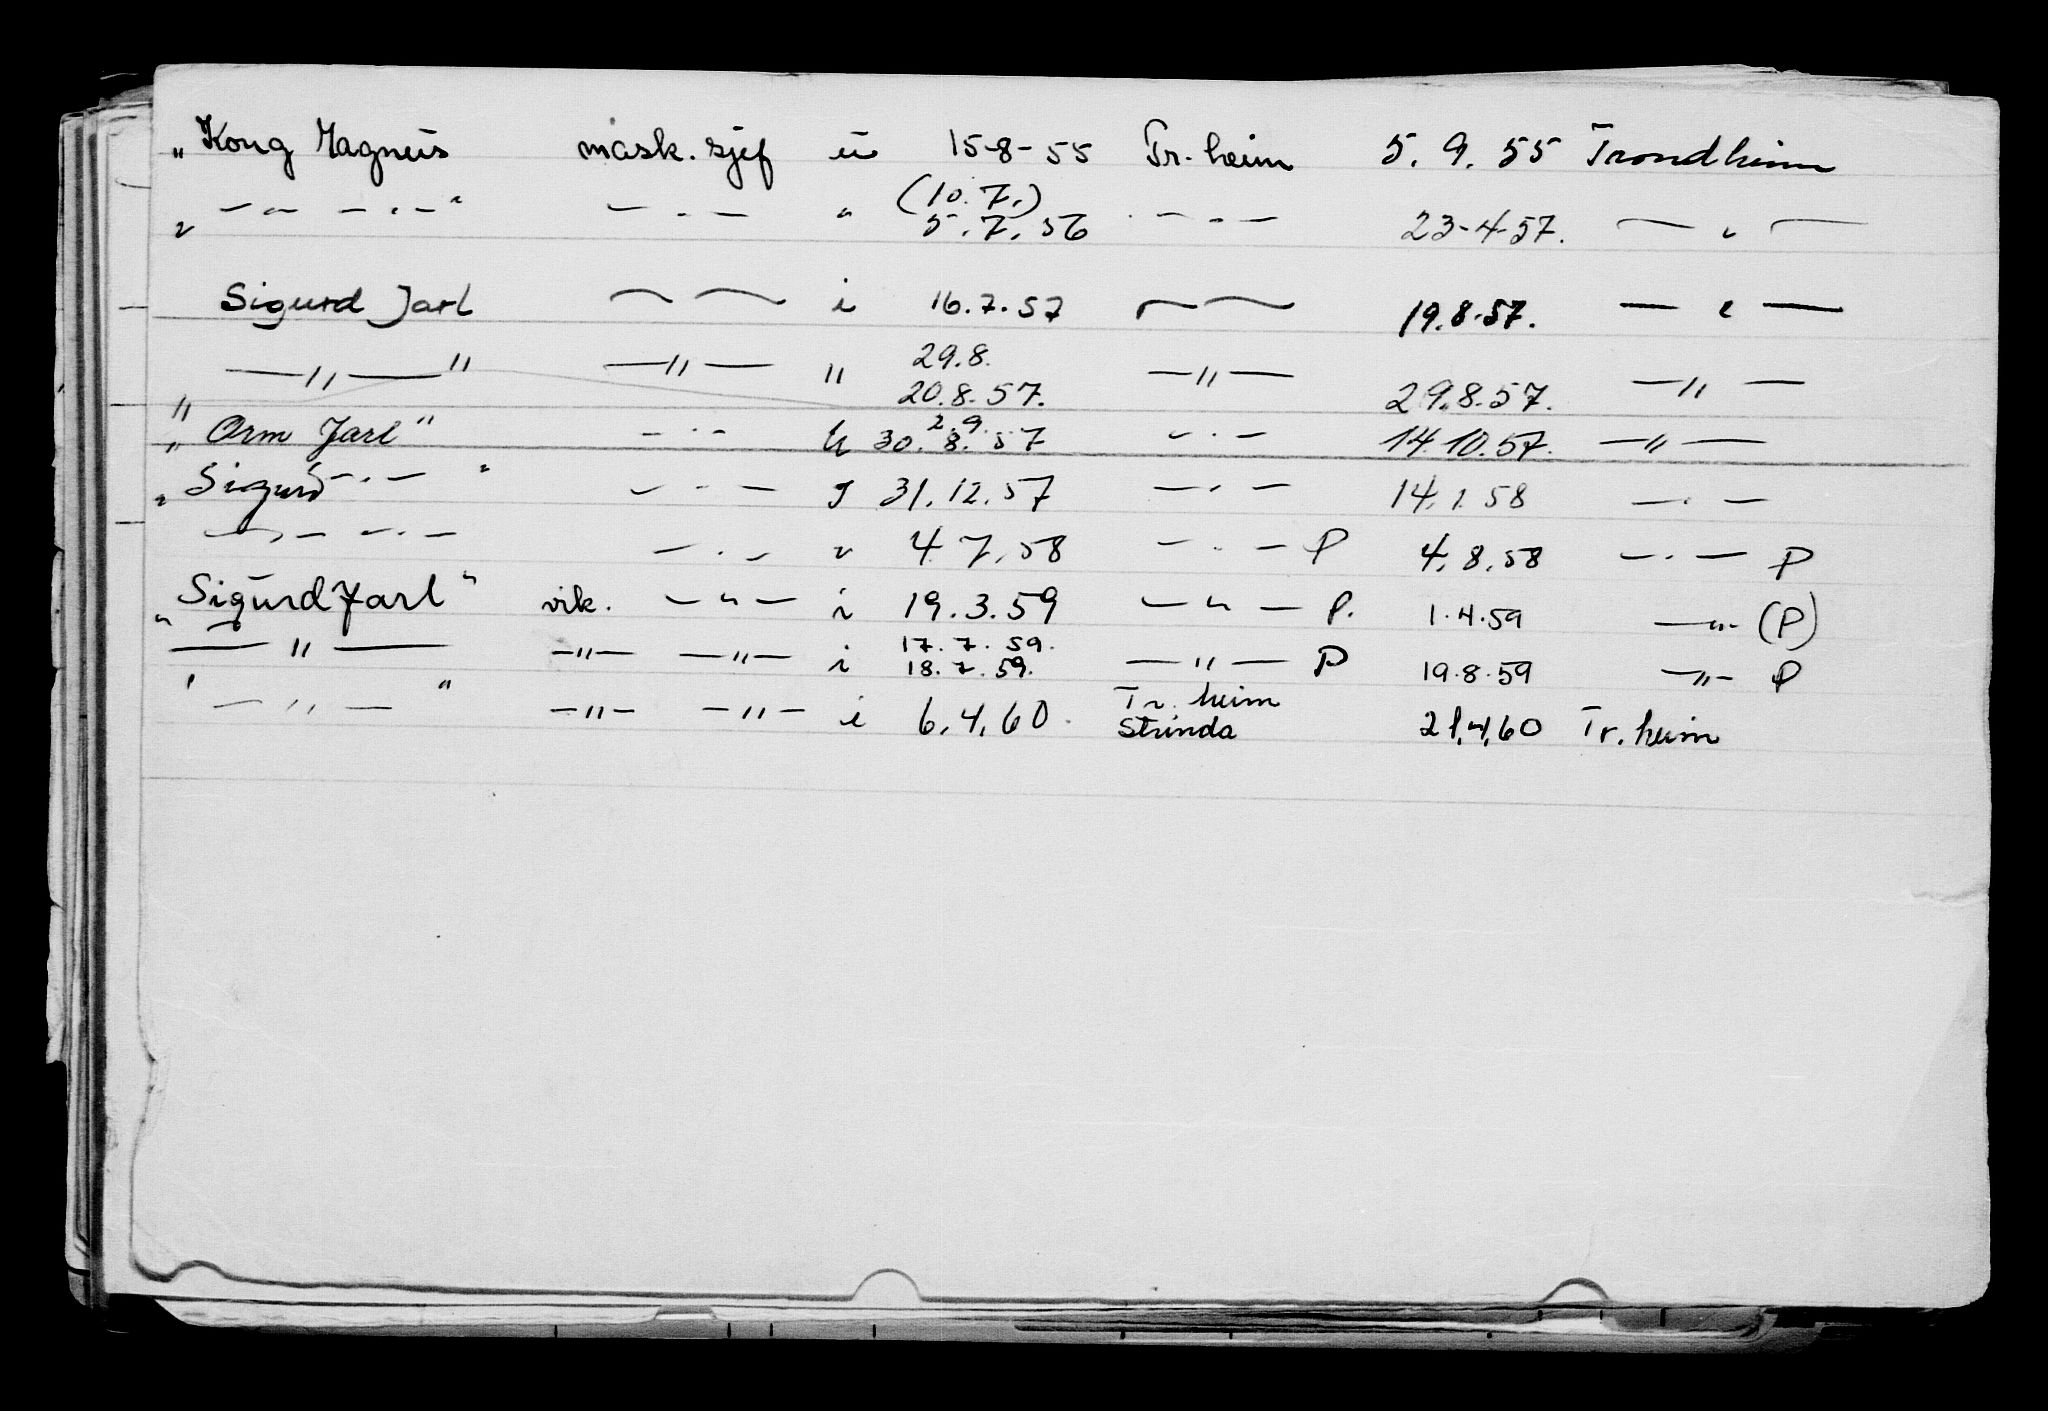 „ Kong Magnus mask. sjef u 15-8-55 Tr. heim 5. 9. 55 Trondheim
(10. 7.)
„ — " — — . — " — . — " 5. 7. 56 — . — 23-4-57. — „ —
Sigurd Jarl — — i 16.7.57 — — 19.8.57. — „ —
29.8.
— " — " — " — " 20.8.57. — " — 29.8.57. — " —
2.9.
" Orm Jarl " — . — 30.8.57 — . — 14.10.57. — " —
„ Sigurd — . — " — . — 31.12.57 — . — 14.1.58 — . —
„ — " — — . — — . — " 4.7.58 — . — P 4.8.58 — . — P
„ Sigurd Jarl " vik. — " — i 19.3.59 — " — P. 1.4.59 — " — (P)
17.7.59.
— " — — " — — " — i 18.7.59. — " — P 19.8.59 — " — P
' — " — " — " — — " — i 6.4.60 Tr. heim
Strinda 21.4.60 Tr. heim